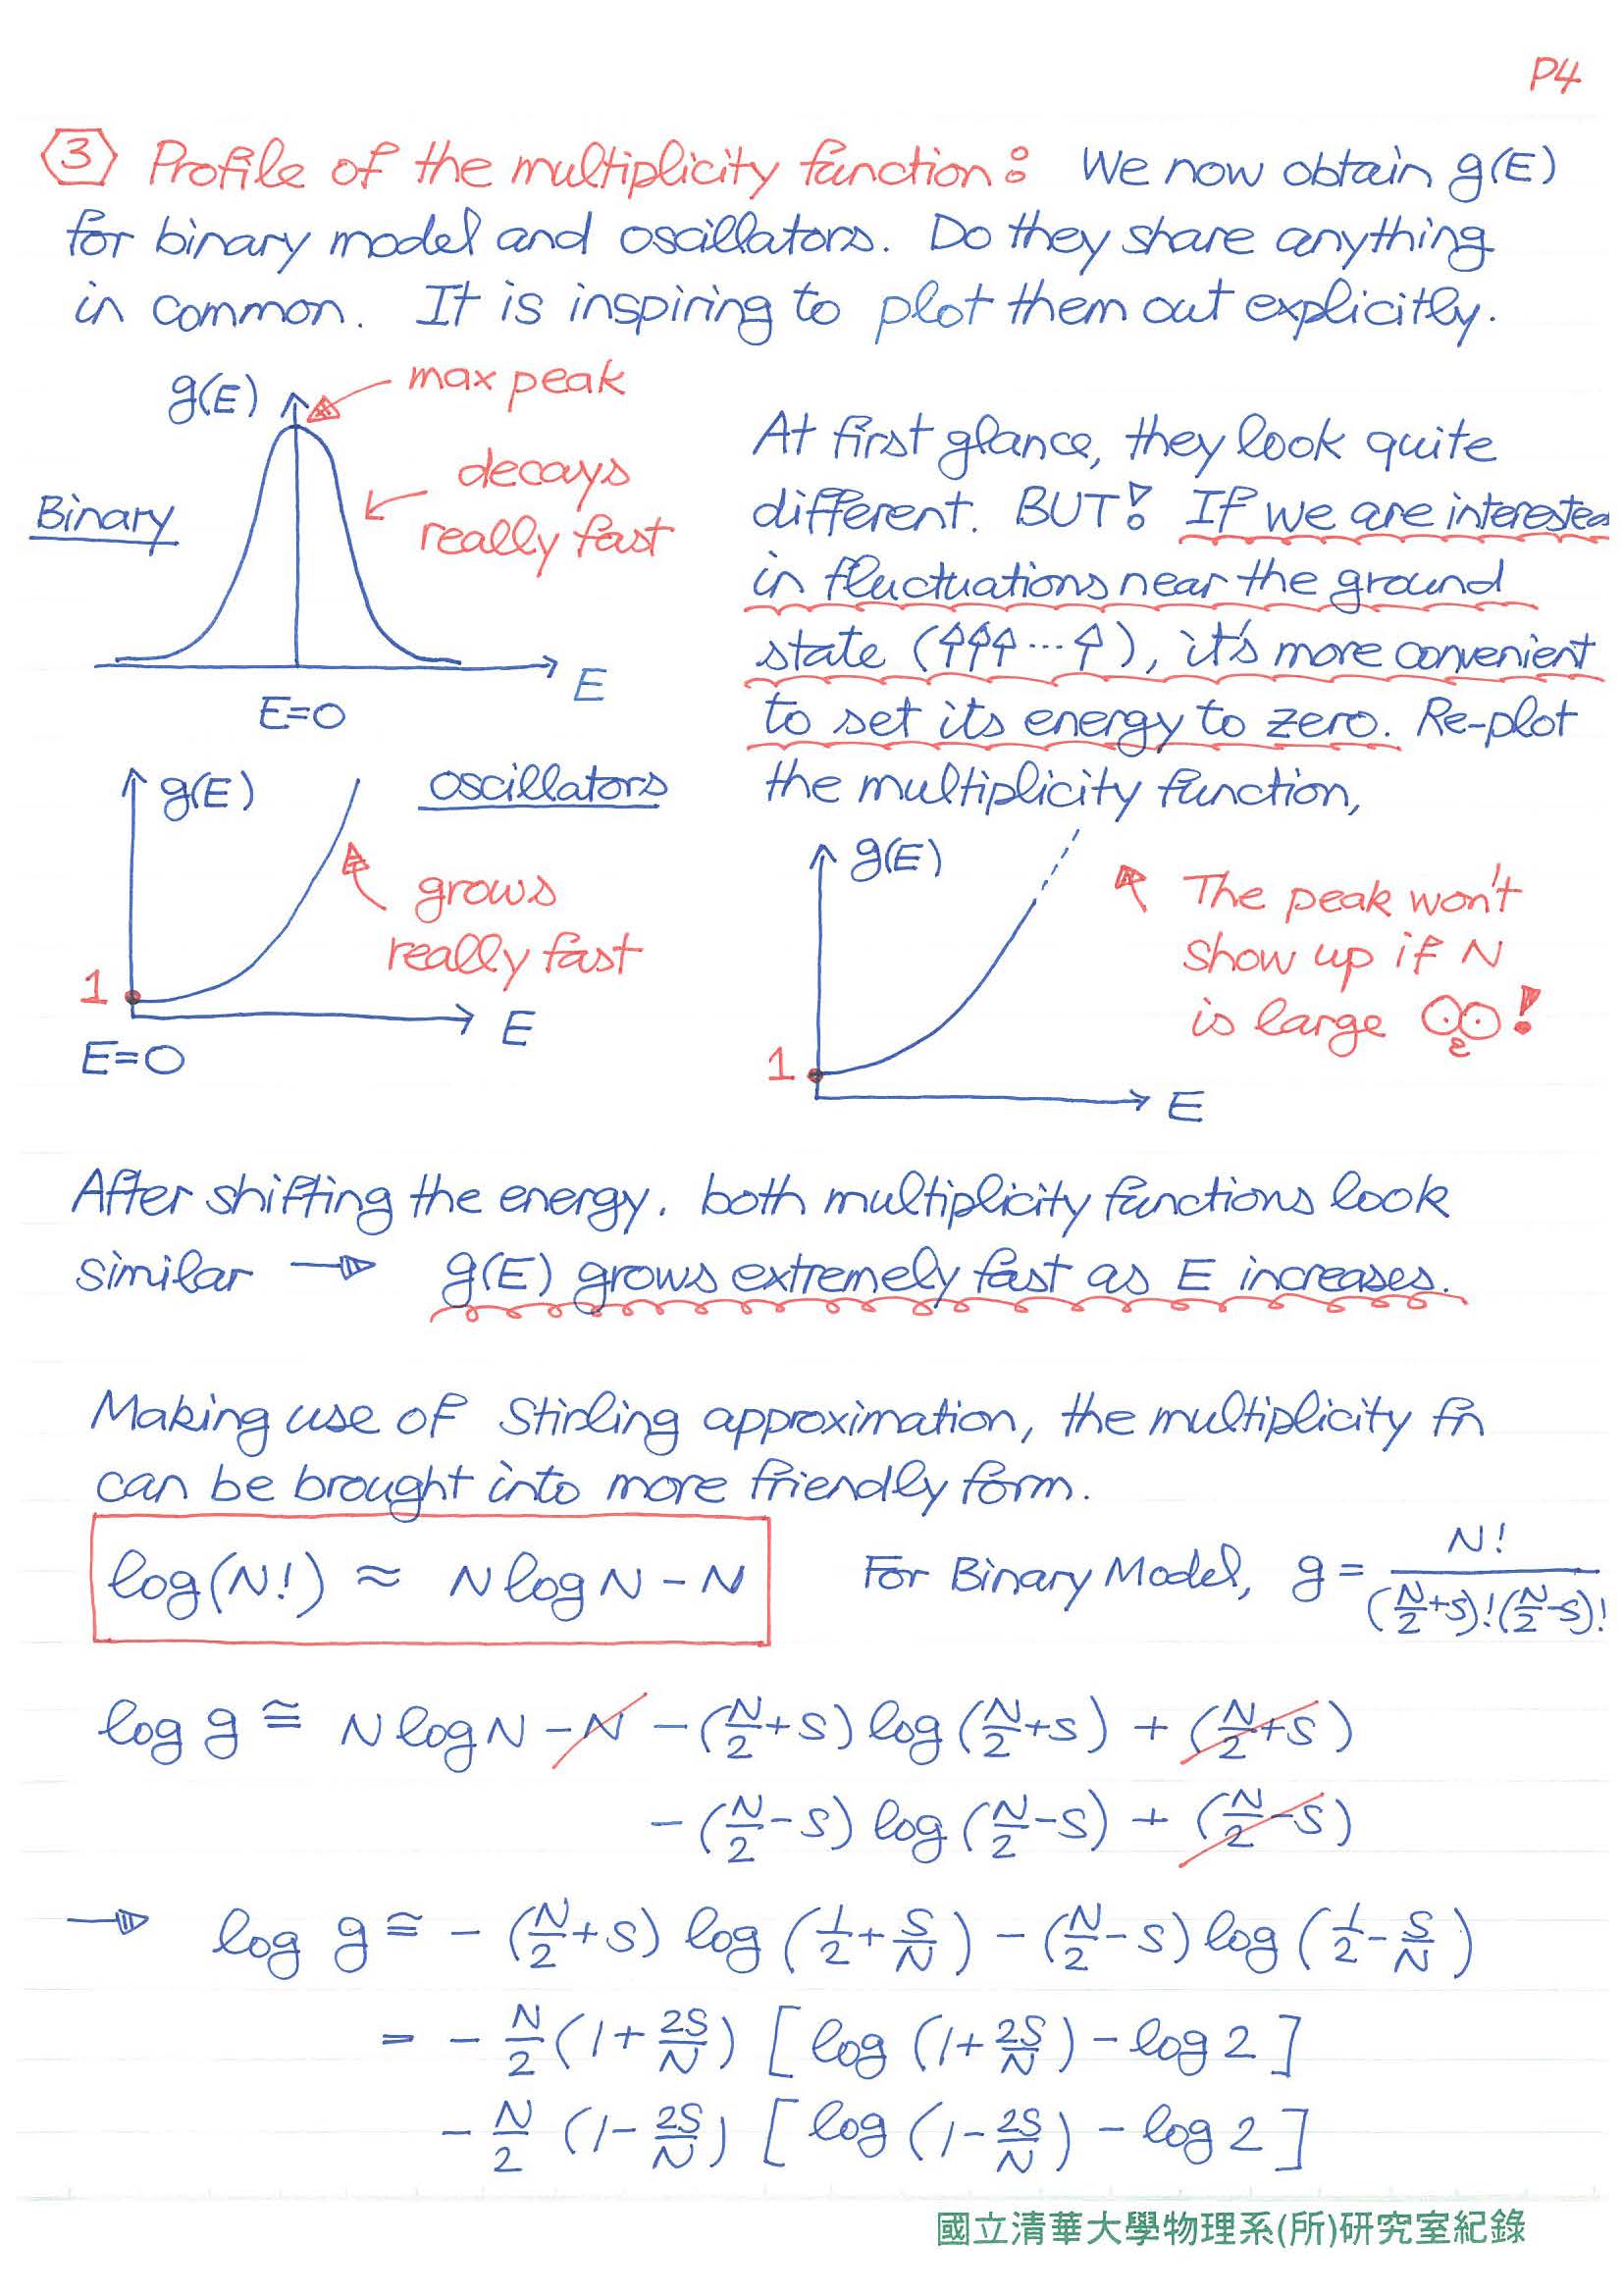 P4
③ Profile of the multiplicity function: We now obtain g(E)
for binary model and oscillators. Do they share anything
in common. It is inspiring to plot them out explicitly.
g(E)
max peak
decays
really fast
Binary
E
E=0
At first glance, they look quite
different. BUT! If we are interested
in fluctuations near the ground
state (⇑⇑⇑...⇑), it's more convenient
to set its energy to zero. Re-plot
the multiplicity function,
g(E)
oscillators
grows
really fast
1
E
E=0
g(E)
The peak won't
show up if N
is large !
1
E
After shifting the energy. both multiplicity functions look
similar → g(E) grows extremely fast as E increases.
Making use of Stirling approximation, the multiplicity fn
can be brought into more friendly form.
log(N!) ≈ N log N - N
For Binary Model, g = N! / (N/2+S)!(N/2-S)!
log g ≅ N log N - N - (N/2+S) log (N/2+S) + (N/2+S)
- (N/2-S) log (N/2-S) + (N/2-S)
→ log g ≅ - (N/2+S) log (1/2+S/N) - (N/2-S) log (1/2-S/N)
= - N/2 (1+2S/N) [log (1+2S/N) - log 2]
- N/2 (1-2S/N) [log (1-2S/N) - log 2]
國立清華大學物理系(所)研究室紀錄